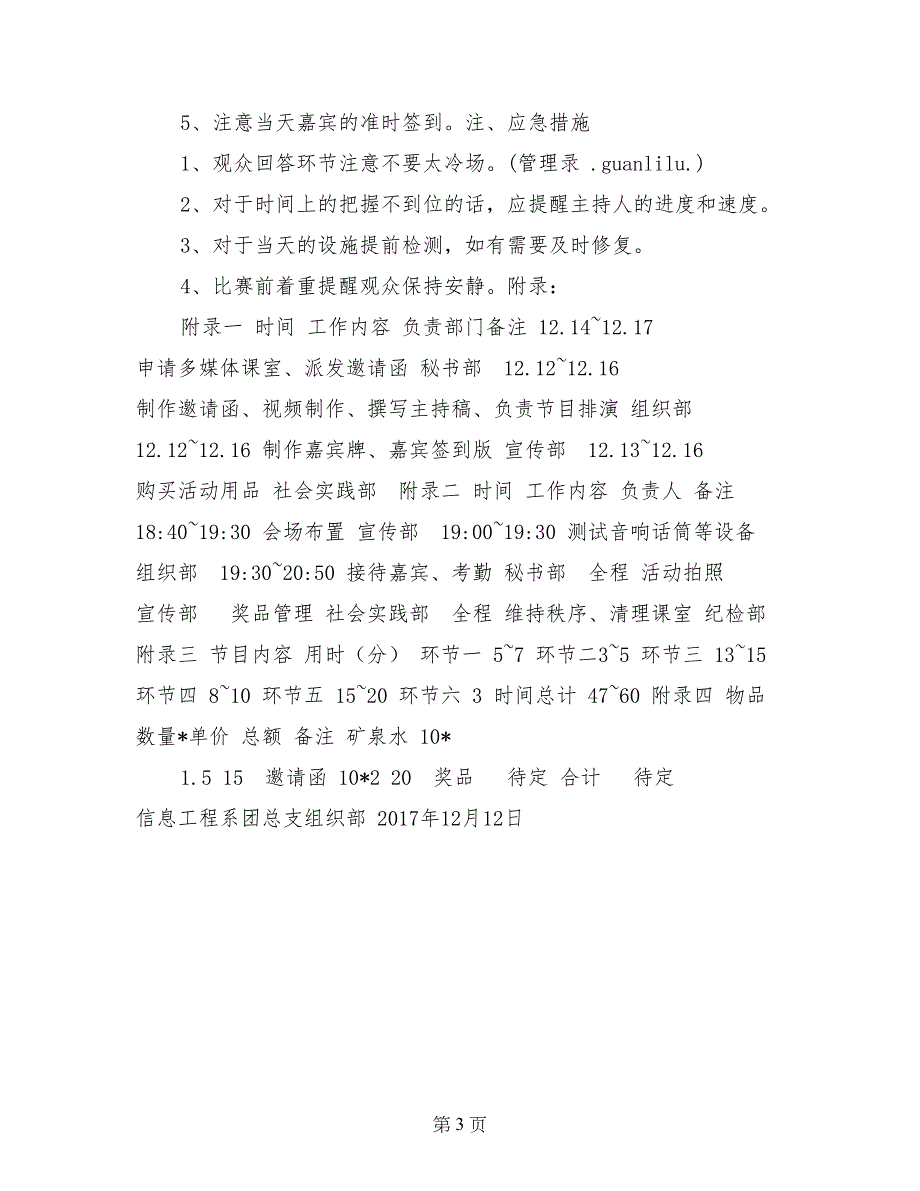 5、注意当天嘉宾的准时签到。注、应急措施
1、观众回答环节注意不要太冷场。(管理录 .guanlilu.)
2、对于时间上的把握不到位的话，应提醒主持人的进度和速度。
3、对于当天的设施提前检测，如有需要及时修复。
4、比赛前着重提醒观众保持安静。附录：
附录一 时间 工作内容 负责部门备注 12.14~12.17
申请多媒体课室、派发邀请函 秘书部  12.12~12.16
制作邀请函、视频制作、撰写主持稿、负责节目排演 组织部
12.12~12.16 制作嘉宾牌、嘉宾签到版 宣传部  12.13~12.16
购买活动用品 社会实践部  附录二 时间 工作内容 负责人 备注
18:40~19:30 会场布置 宣传部  19:00~19:30 测试音响话筒等设备
组织部  19:30~20:50 接待嘉宾、考勤 秘书部  全程 活动拍照
宣传部   奖品管理 社会实践部  全程 维持秩序、清理课室 纪检部
附录三 节目内容 用时（分） 环节一 5~7 环节二3~5 环节三 13~15
环节四 8~10 环节五 15~20 环节六 3 时间总计 47~60 附录四 物品
数量*单价 总额 备注 矿泉水 10*
1.5 15  邀请函 10*2 20  奖品   待定 合计   待定
信息工程系团总支组织部 2017年12月12日
第 3 页